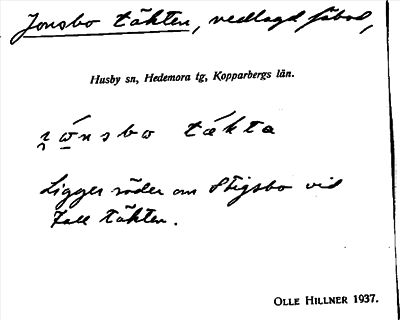 Jonsbo täkten, vedlagd fäbod,
Husby sn, Hedemora tg, Kopparbergs län.
täkta
Ligger söder om Stigsbo vid
täkten.
OLLE HILLNER 1937.